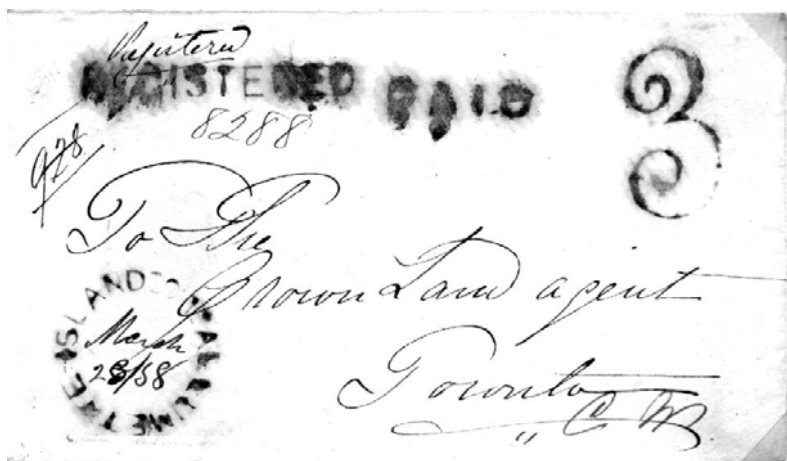 Registered
REGISTERED PAID 3
8288
928
To The
Crown Land agent
Toronto
" C W.
THE ISLAND
March